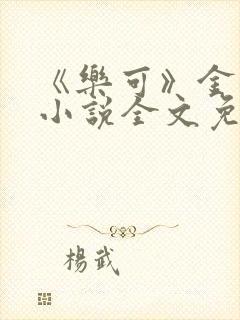 《樂可》金
小說全文免
楊武